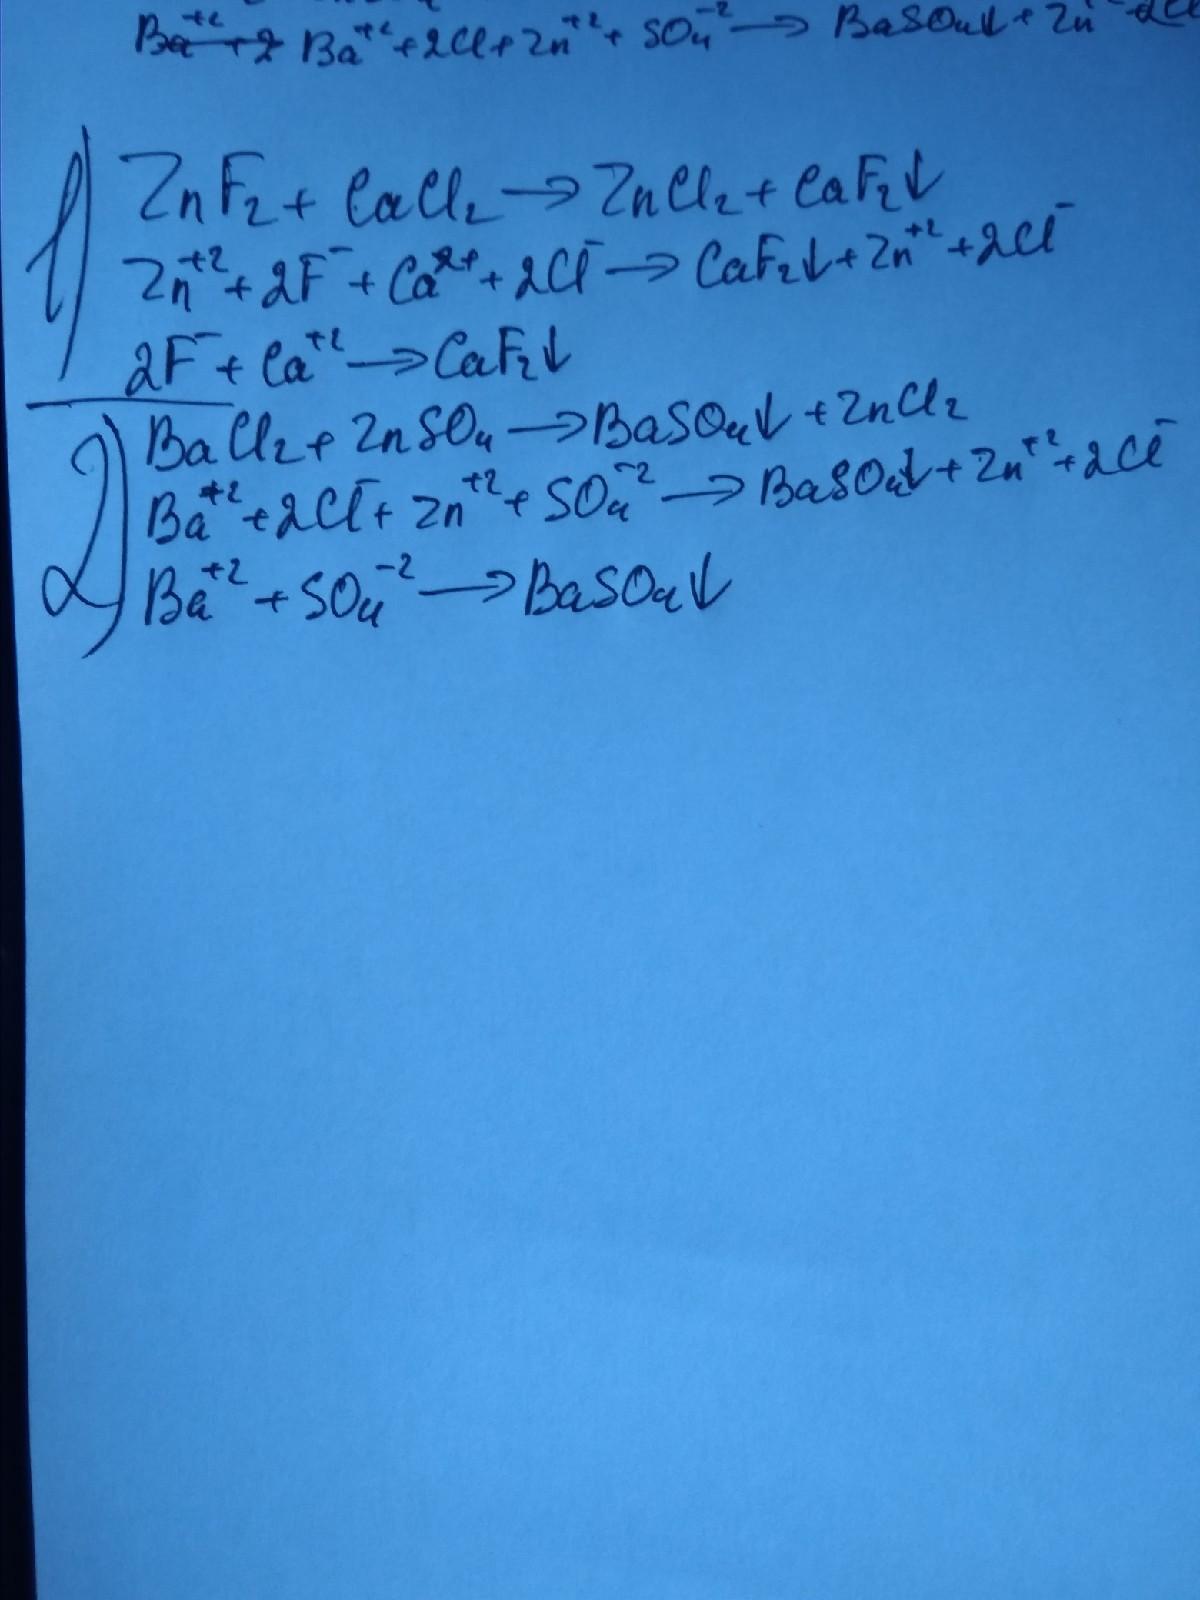 Ba⁺² + 2 Ba⁺² + 2Cl + Zn⁺² + SO₄⁻² → BaSO₄↓ + Zn
1) ZnF₂ + CaCl₂ → ZnCl₂ + CaF₂↓
Zn⁺² + 2F⁻ + Ca²⁺ + 2Cl⁻ → CaF₂↓ + Zn⁺² + 2Cl⁻
2F⁻ + Ca⁺² → CaF₂↓
2) BaCl₂ + ZnSO₄ → BaSO₄↓ + ZnCl₂
Ba⁺² + 2Cl⁻ + Zn⁺² + SO₄⁻² → BaSO₄↓ + Zn⁺² + 2Cl⁻
Ba⁺² + SO₄⁻² → BaSO₄↓